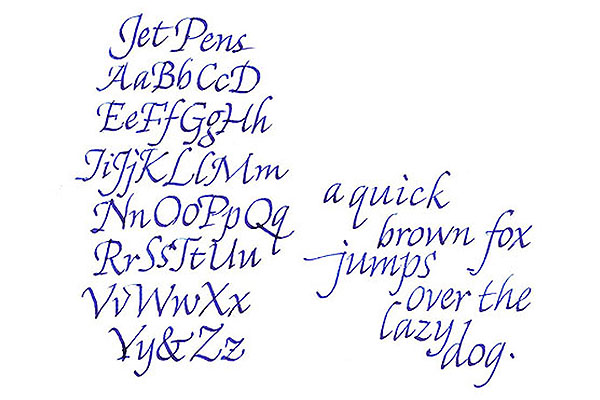 Jet Pens
AaBbCcD
EeFfGgHh
IiJjKLlMm
NnOoPpQq
RrSsTtUu
VvWwXx
Yy&Zz
a quick
brown fox
jumps
over the
lazy
dog.